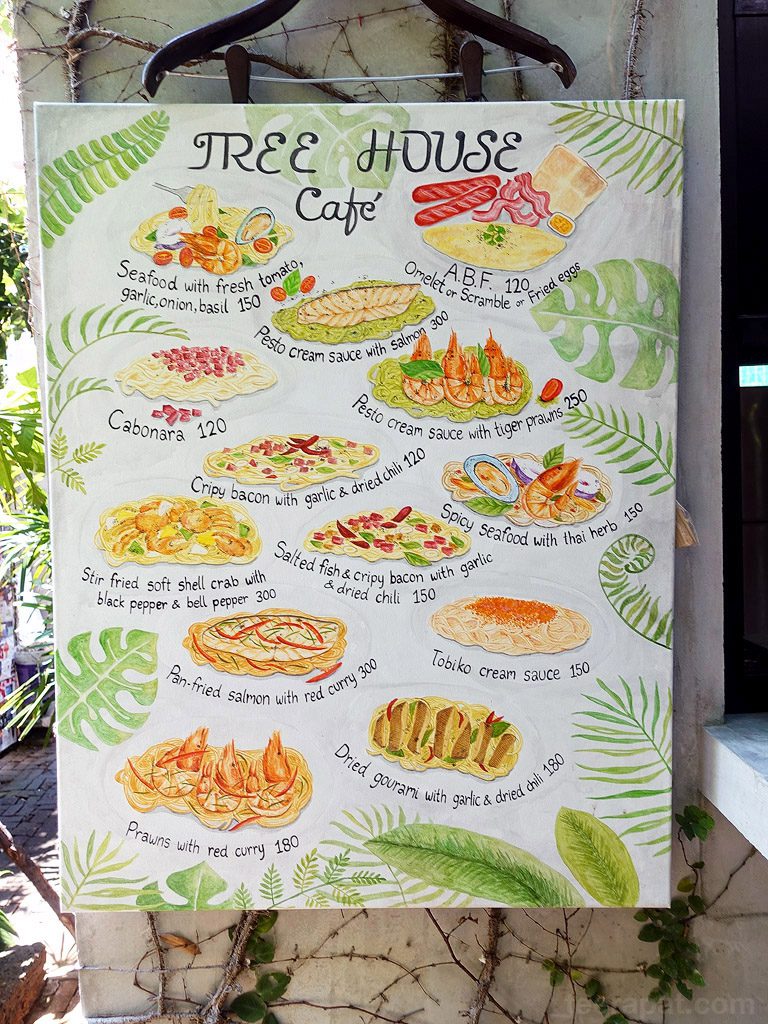 TREE HOUSE
Café
Seafood with fresh tomato,
garlic, onion, basil 150
A.B.F. 120
Omelet or Scramble or Fried eggs
Pesto cream sauce with salmon 300
Cabonara 120
Pesto cream sauce with tiger prawns 250
Cripy bacon with garlic & dried chili 120
Spicy seafood with thai herb 150
Stir fried soft shell crab with
black pepper & bell pepper 300
Salted fish & cripy bacon with garlic
& dried chili 150
Pan-fried salmon with red curry 300
Tobiko cream sauce 150
Dried gourami with garlic & dried chili 180
Prawns with red curry 180
teerapat.com